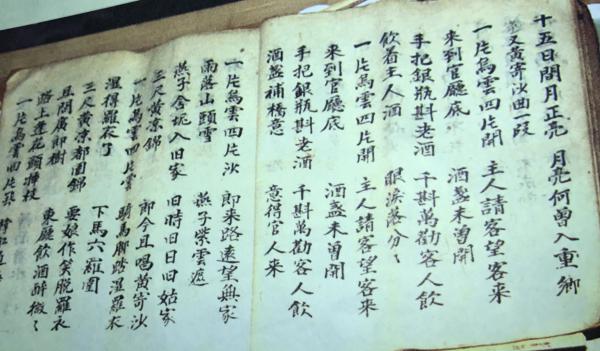 十五日間月正亮 月亮何曾入重鄉
又黄寄沙曲一段
一片烏雲四片開 主人請客望客來
來到官廳底 酒盞未曾開
手把銀瓶斟老酒 千斟萬勸客人飲
飲着主人酒 眼淚落分〻
一片烏雲四片開 主人請客望客來
來到官廳底 酒盞未曾開
手把銀瓶斟老酒 千斟萬勸客人飲
酒盞補橋意 意得官人來
一片烏雲四片沙 郎來路遠望無家
雨落山頭雪 燕子紫雲遮
燕子含坭入旧家 旧時旧日旧姑家
三尺黄凉錦 郎今且唱黄寄沙
一片烏雲四片雲 騎馬脚踏湿羅衣
湿得羅衣了 下馬六羅圍
三尺黄凉都圍錦 要娘作笑脫羅衣
且閗廣郎樹 東廳飲酒醉微〻
路上蓮花頭揷枝
一片烏雲四片